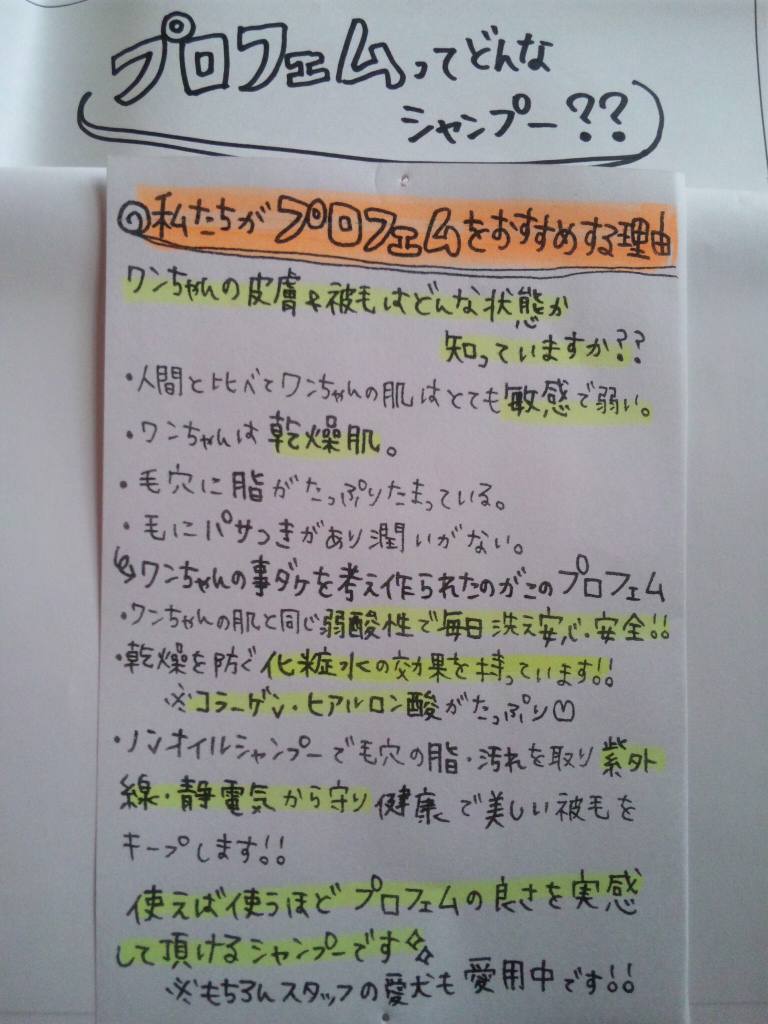 プロフェムってどんな
シャンプー??
私たちがプロフェムをおすすめする理由
ワンちゃんの皮膚&被毛はどんな状態か
知っていますか??
・人間と比べてワンちゃんの肌はとても敏感で弱い。
・ワンちゃんは乾燥肌。
・毛穴に脂がたっぷりたまっている。
・毛にパサつきがあり潤いがない。
↳ワンちゃんの事ダケを考え作られたのがこのプロフェム
・ワンちゃんの肌と同じ弱酸性で毎日洗え安心・安全!!
・乾燥を防ぐ化粧水の効果を持っています!!
※コラーゲン・ヒアルロン酸がたっぷり♡
・ノンオイルシャンプーで毛穴の脂・汚れを取り紫外
線・静電気から守り健康で美しい被毛を
キープします!!
使えば使うほどプロフェムの良さを実感
して頂けるシャンプーです☆
※もちろんスタッフの愛犬も愛用中です!!